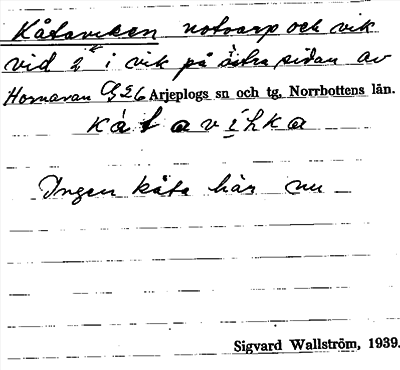 Kåtaviken notvarp och vik
vid 2 i vik på östra sidan av
Hornavan G26 Arjeplogs sn och tg. Norrbottens län.
kå̀tavíka
Ingen kåta här nu
Sigvard Wallström, 1939.